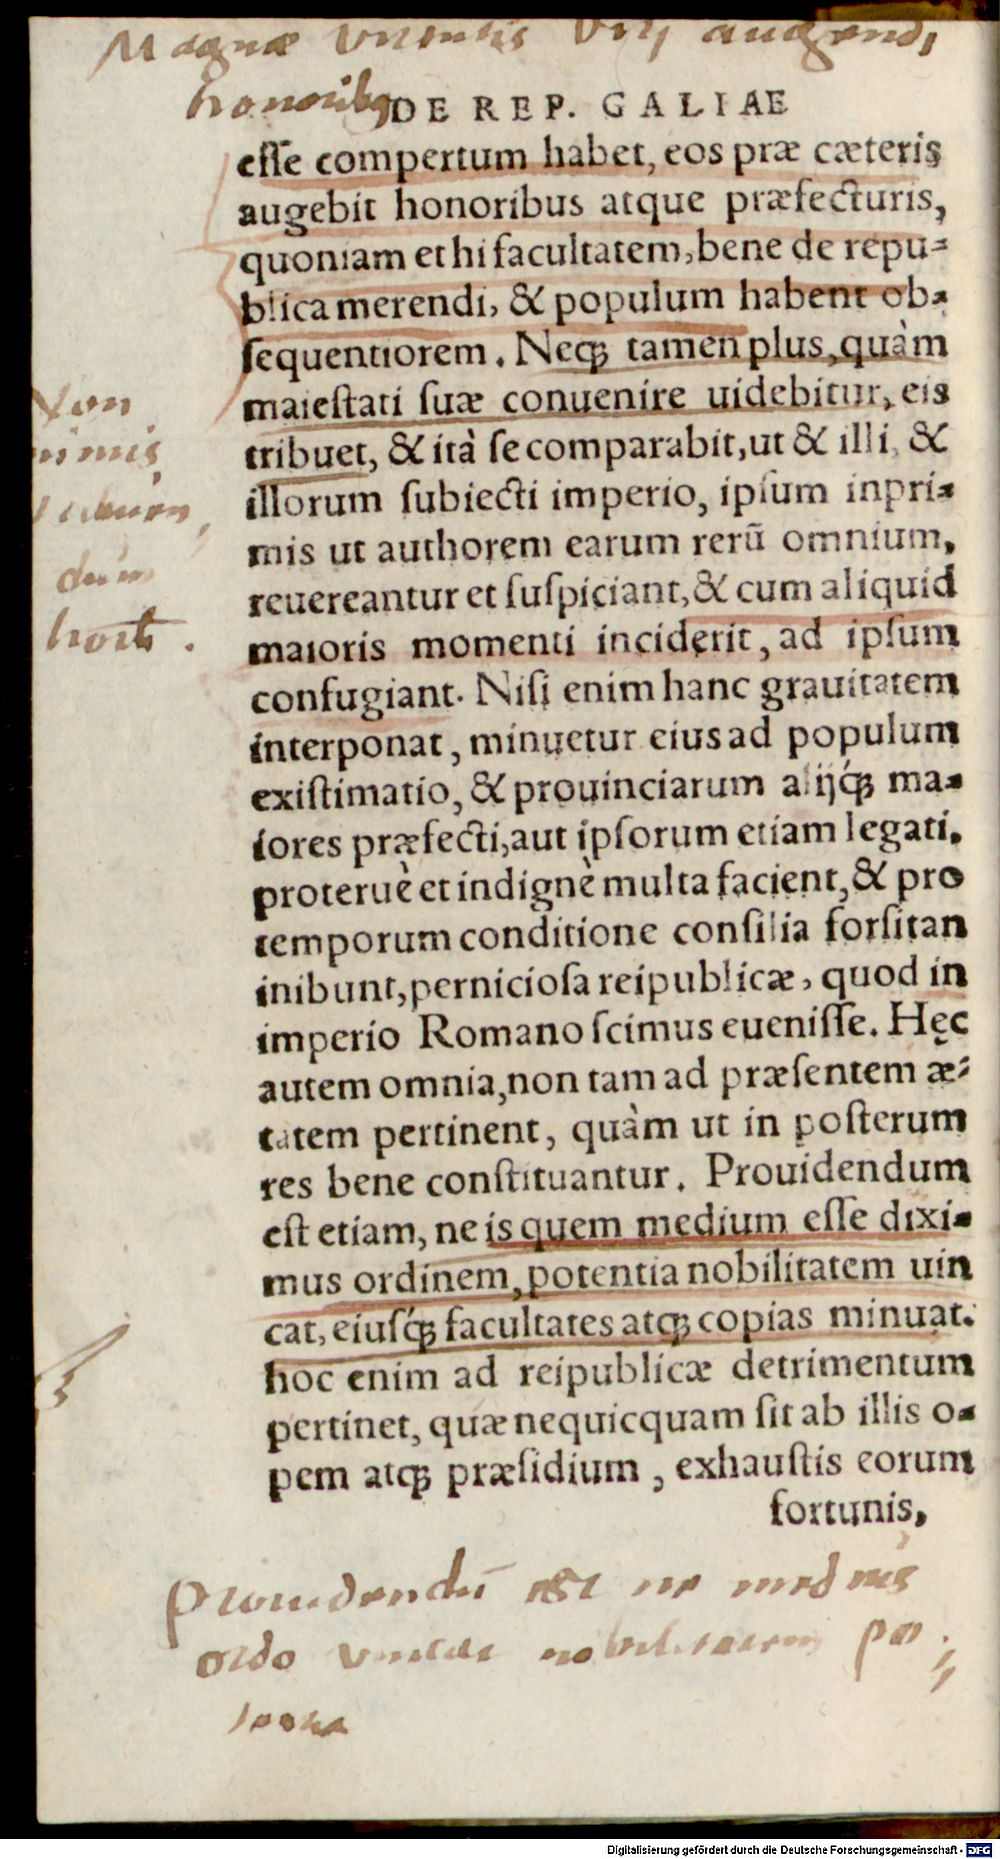 Magnæ virtutis viri augendi
honoribus
DE REP. GALIAE
esse compertum habet, eos præ cæteris
augebit honoribus atque præfecturis,
quoniam et hi facultatem, bene de repu-
blica merendi, & populum habent ob-
sequentiorem. Neqꝫ tamen plus, quàm
maiestati suæ conuenire uidebitur, eis
tribuet, & ità se comparabit, ut & illi, &
illorum subiecti imperio, ipsum inpri-
mis ut authorem earum rerũ omnium,
reuereantur et suspiciant, & cum aliquid
maioris momenti inciderit, ad ipsum
confugiant. Nisi enim hanc grauitatem
interponat, minuetur eius ad populum
existimatio, & prouinciarum alijqꝫ ma-
iores præfecti, aut ipsorum etiam legati.
proteruè et indignè multa facient, & pro
temporum conditione consilia forsitan
inibunt, perniciosa reipublicæ, quod in
imperio Romano scimus euenisse. Hęc
autem omnia, non tam ad præsentem æ-
tatem pertinent, quàm ut in posterum
res bene constituantur. Prouidendum
est etiam, ne is quem medium esse dixi-
mus ordinem, potentia nobilitatem uin
cat, eiusqꝫ facultates atqꝫ copias minuat.
hoc enim ad reipublicæ detrimentum
pertinet, quæ nequicquam sit ab illis o-
pem atqꝫ præsidium, exhaustis eorum
fortunis,
Non
nimis
dum
Prouidendũ est ne medius
ordo vincat nobilitatem po
tentia